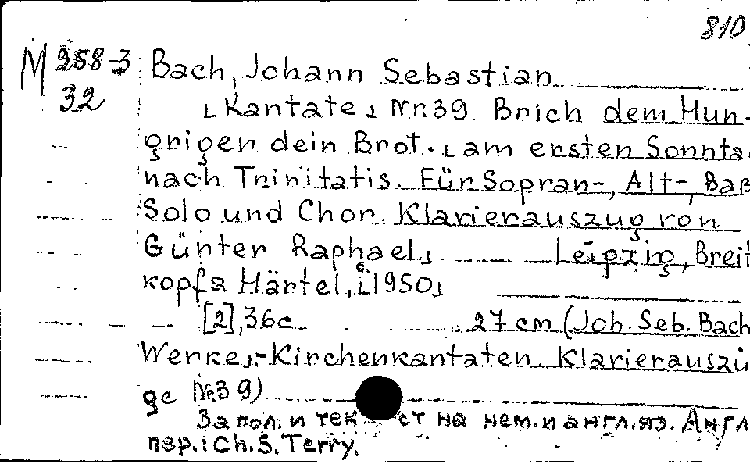 810
M 258-3 Bach, Johann Sebastian
32 [Kantate] Nr.39. Brich dem Hun-
grigen dein Brot. [am ersten Sonnta
nach Trinitatis. Für Sopran-, Alt-, Baß
Solo und Chor. Klavierauszug von
Günter Raphael] Leipzig, Breit
kopf & Härtel, [1950]
[2], 36 с. 27 cm (Joh. Seb. Bach
Werke.-Kirchenkantaten. Klavierauszü
ge №39)
Загол. и текст на нем. и англ. яз. Англ
пер.: Ch. S. Terry.